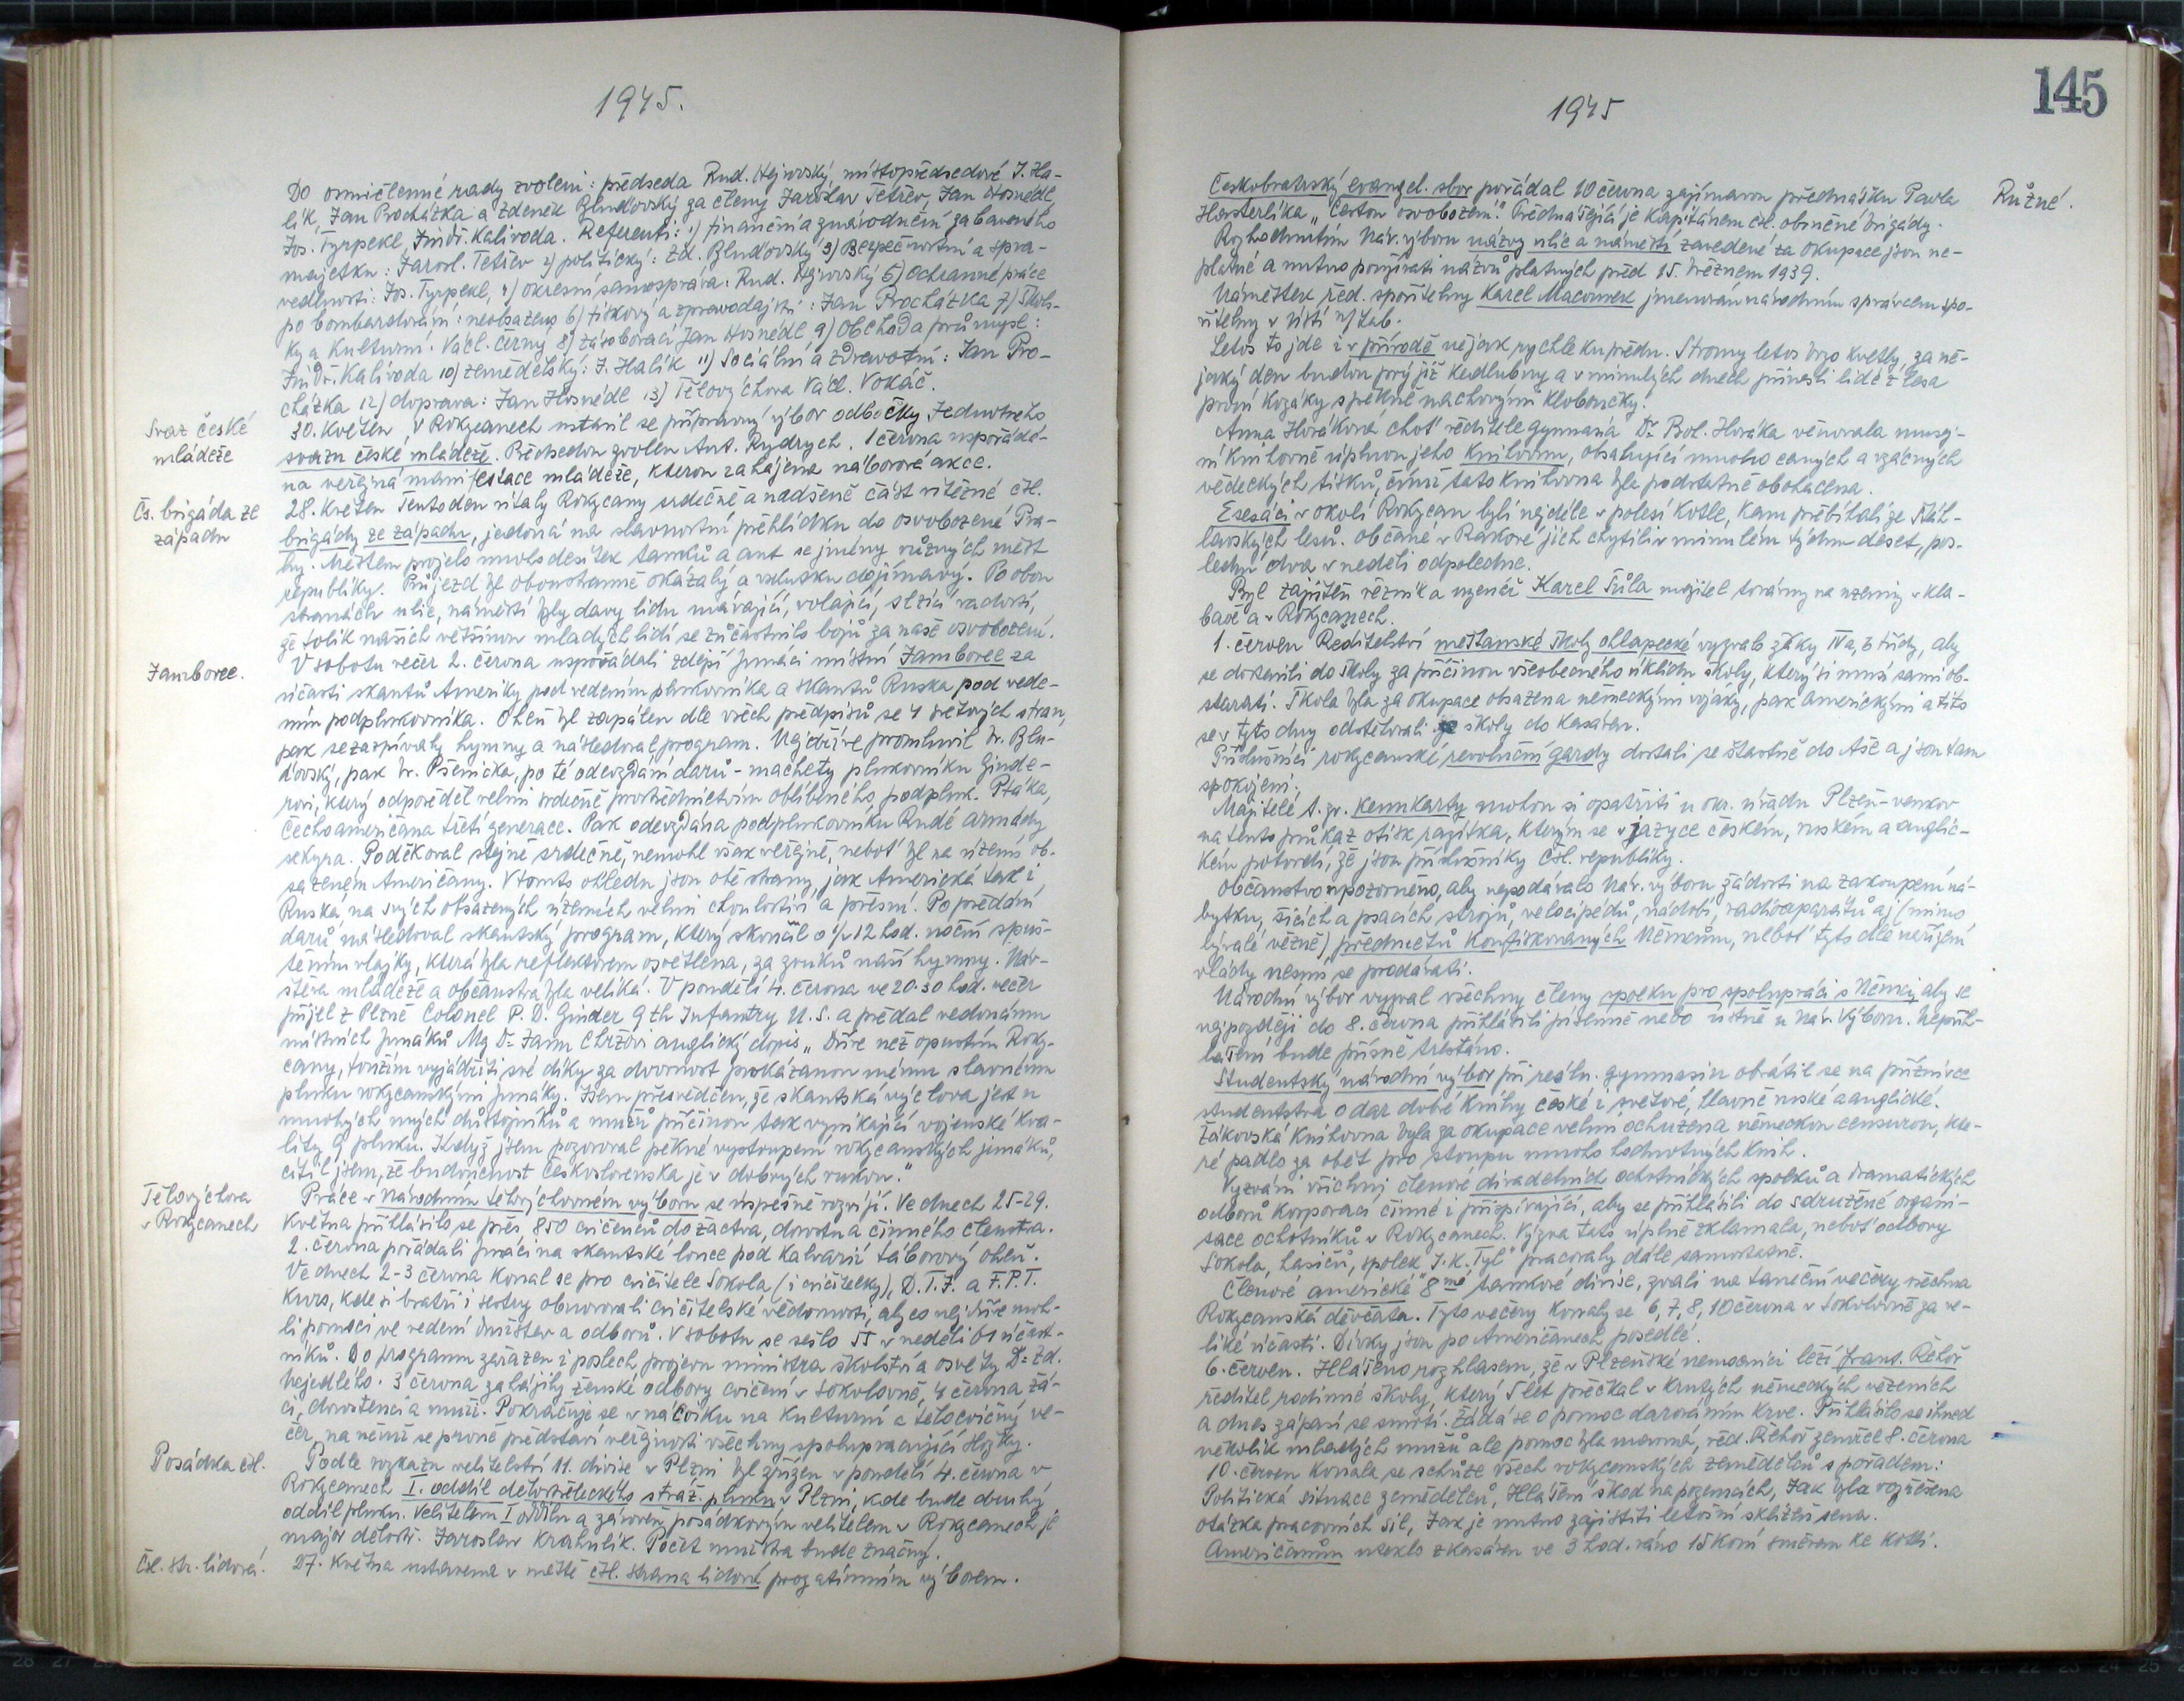 1945.
Do osmičlenné rady zvoleni: předseda Rud. Hejrovský, místopředsedové J. Ha-
lík, Jan Procházka a Zdeněk Bluďovský, za členy Jaroslav Tetřev, Jan Hosnédl,
Jos. Tyrpekl, Jindř. Kalivoda. Referenti: 1) finanční a znárodnění zabaveného
majetku: Jarosl. Tetřev 2) politický: Zd. Bluďovský 3) Bezpečnostní a spra-
vedlnosti: Jos. Tyrpekl, 4) okresní samospráva: Rud. Hejrovský 5) Ochranné práce
po bombardování: neobsazeno 6) tiskový a zpravodajský: Jan Procházka 7) Škols-
ký a Kulturní: Václ. Černý 8) zásobovací Jan Hosnédl 9) Obchod a průmysl:
Jindř. Kalivoda 10) zemědělský: J. Halík 11) Sociální a zdravotní: Jan Pro-
cházka 12) doprava: Jan Hosnédl 13) Tělovýchova Václ. Vokáč.
Svaz české
mládeže
30. Květen v Rokycanech ustavil se přípravný výbor odbočky Jednotného
svazu české mládeže. Předsedou zvolen Ant. Rydrych. 1 června uspořádá-
na veřejná manifestace mládeže, kterou zahájena náborová akce.
Čs. brigáda ze
západu
28. Květen Tento den vítaly Rokycany srdečně a nadšeně část vítězné čsl.
brigády ze západu, jedoucí na slavnostní přehlídku do osvobozené Pra-
hy. Městem projelo mnoho desítek tanků a aut se jmény různých měst
republiky. Průjezd byl oboustranně okázalý a vskutku dojímavý. Po obou
stranách ulic, náměstí byly davy lidu mávající, volající, slzící radostí,
že tolik našich většinou mladých lidí se zúčastnilo bojů za naše osvobození.
Jamboree.
V sobotu večer 2. června uspořádali zdejší junáci místní Jamboree za
účasti skautů Ameriky pod vedením plukovníka a skautů Ruska pod vede-
ním podplukovníka. Oheň byl zapálen dle všech předpisů se 4 světových stran,
pak se zazpívaly hymny a následoval program. Nejdříve promluvil br. Blu-
ďovský, pak br. Pšenička, po té odevzdání darů - machety plukovníku Ginde-
rovi, který odpověděl velmi srdečně prostřednictvím oblíbeného podpluk. Ptáka,
Čechoameričana třetí generace. Pak odevzdána podplukovníku Rudé armády
sekyra. Poděkoval stejně srdečně, nemohl však veřejně, neboť byl na území ob-
sazeném Američany. V tomto ohledu jsou obě strany, jak Americká tak i
Ruská, na svých obsazených územích velmi choulostiví a přesní. Po předání
darů následoval skautský program, který skončil o ½12 hod. noční spuš-
těním vlajky, která byla reflektorem osvětlena, za zvuků naší hymny. Náv-
štěva mládeže a občanstva byla veliká. V pondělí 4. června ve 20.30 hod. večer
přijel z Plzně Colonel P. D. Ginder 9th Infantry U.S. a předal vedoucímu
místních junáků Mg Dr Janu Chržovi anglický dopis „ Dříve než opustím Roky-
cany, toužím vyjádřiti své díky za dvornost prokázanou mému slavnému
pluku rokycanskými junáky. Jsem přesvědčen, že skautská výchova jest u
mnohých mých důstojníků a mužů příčinou tak vynikající vojenské kva-
lity 9 pluku. Když jsem pozoroval pěkné vystoupení rokycanských junáků,
cítil jsem, že budoucnost Československa je v dobrých rukou."
Tělovýchova
v Rokycanech
Práce v Národním tělovýchovném výboru se úspěšně rozvíjí. Ve dnech 25-29.
Května přihlásilo se přes 850 cvičenců do žactva, dorostu a činného členstva.
2. června pořádali junáci na skautské louce pod Kalvarií táborový oheň.
Ve dnech 2-3 června konal se pro cvičitele Sokola, (i cvičitelky), D.T.J. a F.P.T.
kurs, kde si bratři i sestry obnovovali cvičitelské vědomosti, aby co nejdříve moh-
li pomoci ve vedení družstev a odborů. V sobotu se sešlo 55 v neděli 61 účast-
níků. Do programu zařazen i poslech projevu ministra školství a osvěty Dr Zd.
Nejedlého. 3 června zahájily ženské odbory cvičení v sokolovně, 4 června žá-
ci, dorostenci a muži. Pokračuje se v nácviku na kulturní a tělocvičný ve-
čer, na němž se prvně představí veřejnosti všechny spolupracující složky.
Posádka čsl.
Podle rozkazu velitelství 11. divise v Plzni byl zřízen v pondělí 4. června v
Rokycanech I. oddíl dělostřeleckého stráž. pluku v Plzni, kde bude druhý
oddíl pluku. Velitelem I oddílu a zároveň posádkovým velitelem v Rokycanech je
major dělostř. Jaroslav Krahulík. Počet mužstva bude značný.
Čsl. str. lidová.
27. Května ustavena v městě čsl. strana lidová prozatímním výborem.
145
1945
Různé.
Českobratrský evangel. sbor pořádal 10 června zajímavou přednášku Pavla
Horsterlíka „Cestou osvobození." Přednášející je kapitánem čsl. obrněné brigády.
Rozhodnutím Nár. výboru názvy ulic a náměstí zavedené za okupace jsou ne-
platné a nutno používati názvů platných před 15. březnem 1939.
Náměstek řed. spořitelny Karel Macourek jmenován národním správcem spo-
řitelny v Ústí n/Lab.
Letos to jde i v přírodě nějak rychle kupředu. Stromy letos brzo kvetly, za ně-
jaký den budou prý již kedlubny a v minulých dnech přinesli lidé z lesa
první kozáky s pěkně nachovými kloboučky.
Anna Horáková choť ředitele gymnasia Dr Bol. Horáka věnovala musej-
ní knihovně úplnou jeho knihovnu, obsahující mnoho cenných a vzácných
vědeckých tisků, čímž tato knihovna byla podstatně obohacena.
Esesáci v okolí Rokycan byli nejdéle v polesí Kotle, kam přebíhali ze Ráh-
lavských lesů. Občané v Rakové jich chytili v minulém týdnu deset, pos-
lední dva v neděli odpoledne.
Byl zajištěn řezník a uzenář Karel Šůla majitel továrny na uzeniny v Kla-
bavě a v Rokycanech.
1. červen Ředitelství měšťanské školy chlapecké vyzvalo žáky IV a, b třídy, aby
se dostavili do školy za příčinou všeobecného úklidu školy, který si musí sami ob-
starati. Škola byla za okupace obsazena německými vojáky, pak americkými a tito
se v tyto dny odstěhovali ze školy do kasáren.
Příslušníci rokycanské revoluční gardy dostali se šťastně do Aše a jsou tam
spokojeni.
Majitelé t. zv. kennkarty mohou si opatřiti u okr. úřadu Plzeň-venkov
na tento průkaz otisk razítka, kterým se v jazyce českém, ruském a anglic-
kém potvrdí, že jsou příslušníky čsl. republiky.
Občanstvo upozorněno, aby nepodávalo Nár. výboru žádosti na zakoupení ná-
bytku, šicích a psacích strojů, velocipedů, nádobí, radioaparátů aj (mimo
bývalé vězně) předmětů konfiskovaných Němcům, neboť tyto dle nařízení
vlády nesmí se prodávati.
Národní výbor vyzval všechny členy spolku pro spolupráci s Němci, aby se
nejpozději do 8. června přihlásili písemně nebo ústně u Nár. Výboru. Nepřih-
lášení bude přísně trestáno.
Studentský národní výbor při reáln. gymnasiu obrátil se na příznivce
studentstva o dar dobré knihy české i světové, hlavně ruské a anglické.
Žákovská knihovna byla za okupace velmi ochuzena německou censurou, kte-
ré padlo za oběť pro stoupu mnoho hodnotných knih.
Vyzváni všichni členové divadelních ochotnických spolků a dramatických
odborů korporací činné i přispívající, aby se přihlásili do sdružené organi-
sace ochotníků v Rokycanech. Výzva tato úplně zklamala, neboť odbory
Sokola, hasičů, spolek „J. K. Tyl" pracovaly dále samostatně.
Členové americké 8mé tankové divise, zvali na taneční večery všechna
Rokycanská děvčata. Tyto večery konaly se 6, 7, 8, 10 června v sokolovně za ve-
liké účasti. Dívky jsou po Američanech posedlé.
6. červen. Hlášeno rozhlasem, že v Plzeňské nemocnici leží Frant. Řehoř
ředitel rodinné školy, který 5 let přečkal v krutých německých vězeních
a dnes zápasí se smrtí. Žádá se o pomoc darováním krve. Přihlásilo se ihned
několik mladých mužů ale pomoc byla marná, řed. Řehoř zemřel 8. června
10. červen konala se schůze všech rokycanských zemědělců s pořadem:
Politická situace zemědělců, Hlášení škod na pozemcích, Jak byla rozřešena
otázka pracovních sil, Jak je nutno zajistiti letošní sklizeň sena.
Američanům uteklo z kasáren ve 3 hod. ráno 15 koní směrem ke Kotli.